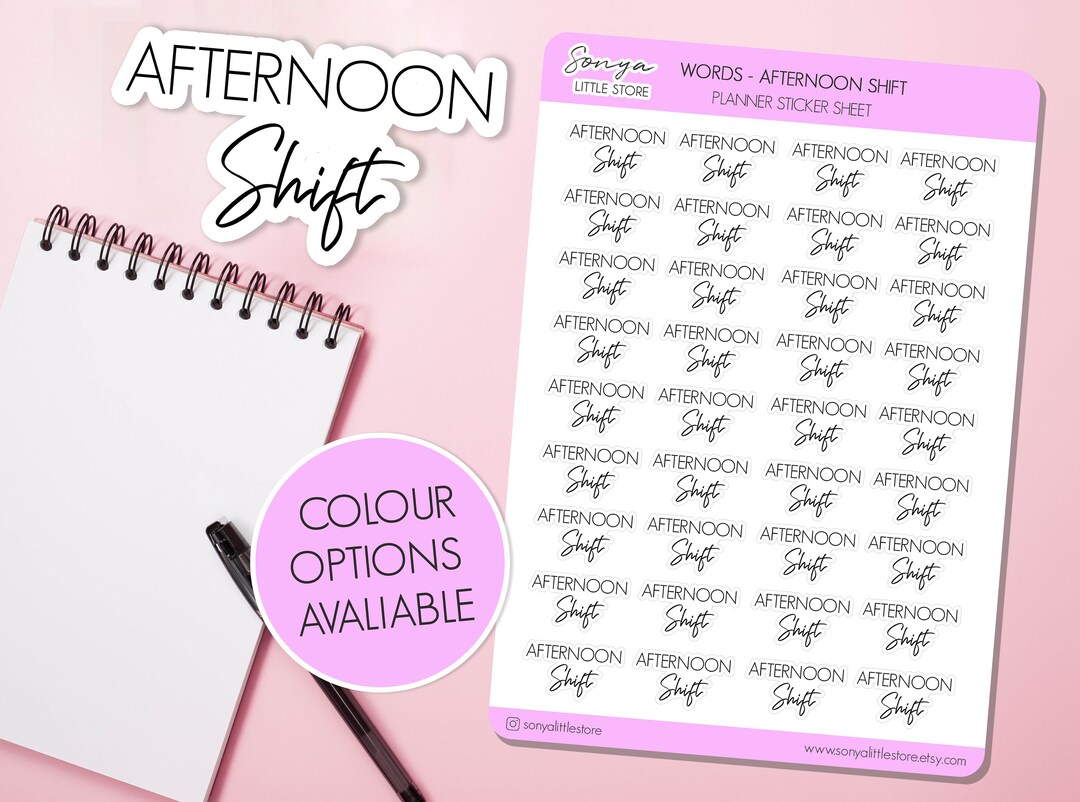 AFTERNOON
Shift
Sonya
LITTLE STORE
WORDS - AFTERNOON SHIFT
PLANNER STICKER SHEET
AFTERNOON AFTERNOON AFTERNOON AFTERNOON
Shift Shift Shift Shift
AFTERNOON AFTERNOON AFTERNOON AFTERNOON
Shift Shift Shift Shift
AFTERNOON AFTERNOON AFTERNOON AFTERNOON
Shift Shift Shift Shift
AFTERNOON AFTERNOON AFTERNOON AFTERNOON
Shift Shift Shift Shift
AFTERNOON AFTERNOON AFTERNOON AFTERNOON
Shift Shift Shift Shift
AFTERNOON AFTERNOON AFTERNOON AFTERNOON
Shift Shift Shift Shift
AFTERNOON AFTERNOON AFTERNOON AFTERNOON
Shift Shift Shift Shift
AFTERNOON AFTERNOON AFTERNOON AFTERNOON
Shift Shift Shift Shift
AFTERNOON AFTERNOON AFTERNOON AFTERNOON
Shift Shift Shift Shift
sonyalittlestore
www.sonyalittlestore.etsy.com
COLOUR
OPTIONS
AVALIABLE